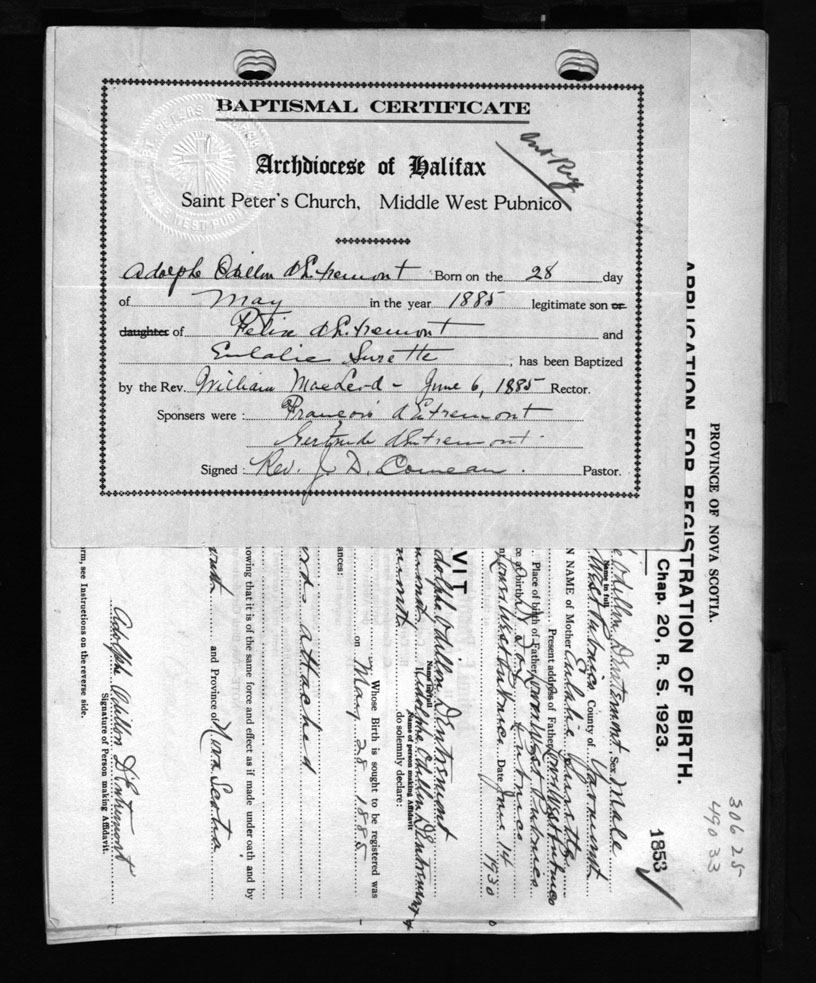 BAPTISMAL CERTIFICATE
Ant Reg
Archdiocese of Halifax
Saint Peter's Church, Middle West Pubnico
Adolphe Odillon d'Entremont Born on the 28 day
of May in the year 1885 legitimate son or
daughter of Felix d'Entremont and
Eulalie Surette, has been Baptized
by the Rev. William MacLeod - June 6, 1885 Rector.
Sponsers were : François d'Entremont
Gertrude d'Entremont.
Signed : Rev. J. D. Comeau. Pastor.
PROVINCE OF NOVA SCOTIA.
APPLICATION FOR REGISTRATION OF BIRTH.
Chap. 20, R. S. 1923.
1853
30625
49033
Odillon D'Entremont Sex Male
Name in full
West Pubnico County of Yarmouth
NAME of Mother Eulalie Surette
Present address of Father Lower West Pubnico
Place of birth of Father Lower West Pubnico
ce of birth
Lower West Pubnico Date June 14 1930
VIT
dolph Odillon D'Entremont
Name in full
Adolphe Odillon D'Entremont
Name of person making Affidavit
do solemnly declare:
Whose Birth is sought to be registered was
on May 28 1885
ances:
ords attached
owing that it is of the same force and effect as if made under oath and by
outh and Province of Nova Scotia
Adolphe Odillon D'Entremont
Signature of Person making Affidavit.
rm, see Instructions on the reverse side.